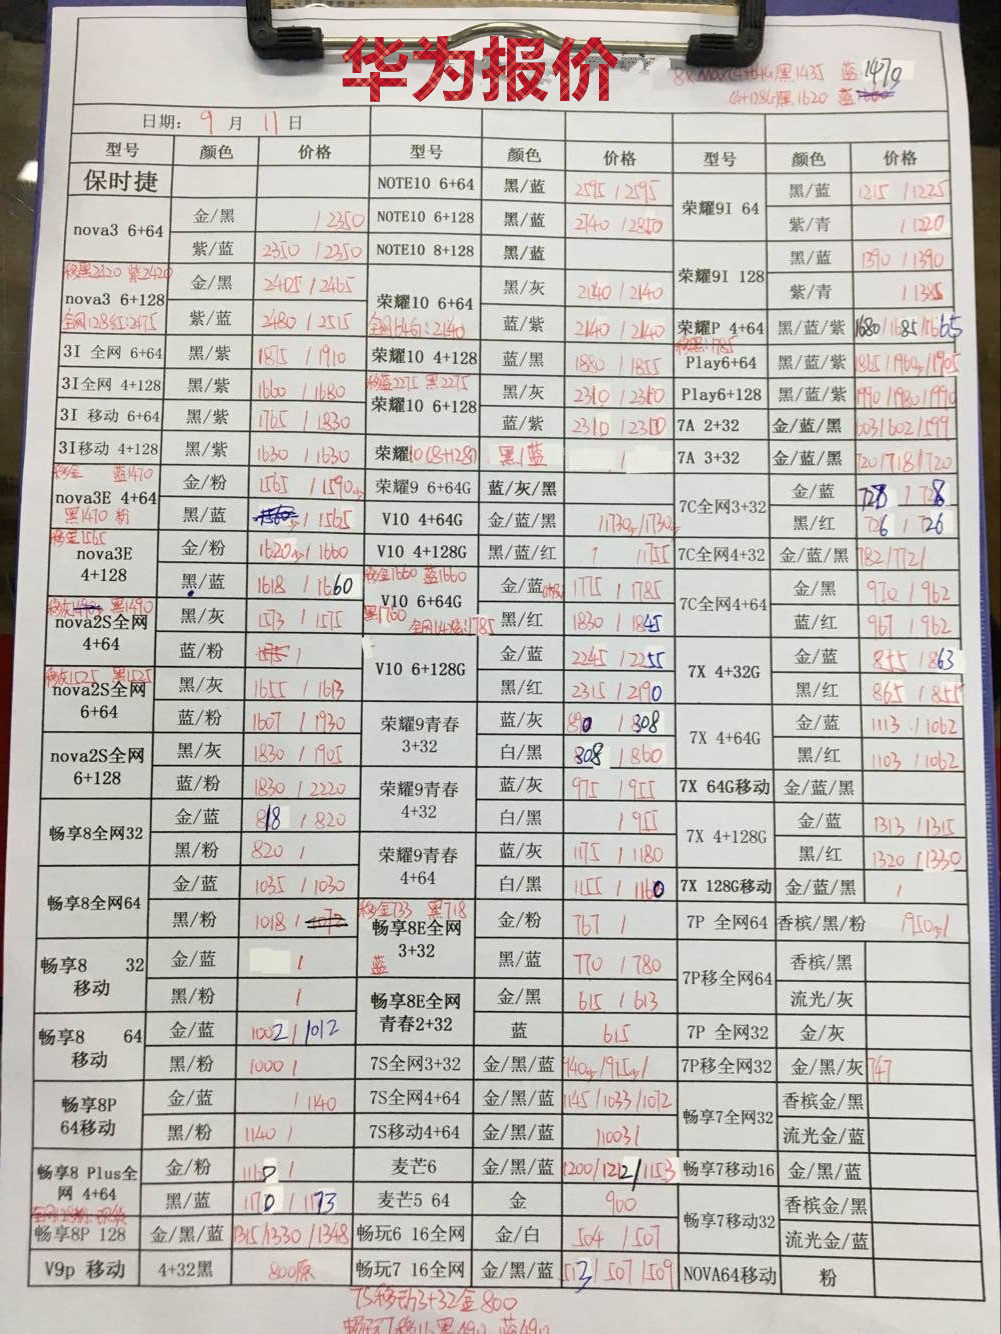 华为报价
8X MAX(4+64G)黑1435 蓝1470
(4+128G)黑1620 蓝
日期: 9 月 11 日
型号 颜色 价格 型号 颜色 价格 型号 颜色 价格
保时捷 NOTE10 6+64 黑/蓝 2595 / 2595 荣耀9I 64 黑/蓝 1215 / 1225
nova3 6+64 金/黑 / 2350 NOTE10 6+128 黑/蓝 2740 / 2850 紫/青 / 1220
紫/蓝 2350 / 2350 NOTE10 8+128 黑/蓝 荣耀9I 128 黑/蓝 1390 / 1390
移黑2420 紫2420
nova3 6+128 金/黑 2405 / 2465 荣耀10 6+64 黑/灰 2140 / 2140 紫/青 / 1385
全网128红:2475 紫/蓝 2480 / 2515 蓝/紫 2140 / 2140 荣耀P 4+64 黑/蓝/紫 1680/1685/1665
3I 全网 6+64 黑/紫 1875 / 1910 荣耀10 4+128 蓝/黑 1880 / 1855 移黑:1785 Play6+64 黑/蓝/紫
3I全网 4+128 黑/紫 1660 / 1680 移蓝2275 黑2275 荣耀10 6+128 黑/灰 2310 / 2310 Play6+128 黑/蓝/紫 1990/1980/1990
3I 移动 6+64 黑/紫 1765 / 1830 蓝/紫 2310 / 2310 7A 2+32 金/蓝/黑 603/602/599
3I移动 4+128 黑/紫 1630 / 1630 荣耀10(8+128) 黑/蓝 / 7A 3+32 金/蓝/黑 720/718/720
移金 蓝1470
nova3E 4+64 金/粉 1565 / 1590 荣耀9 6+64G 蓝/灰/黑 7C全网3+32 金/蓝 728 / 728
黑1470 粉 黑/蓝 / 1565 V10 4+64G 金/蓝/黑 /1730/1730 黑/红 726 / 726
移金1565
nova3E 4+128 金/粉 1620 / 1660 V10 4+128G 黑/蓝/红 / /1755 7C全网4+32 金/蓝/黑 782/772/
黑/蓝 1618 / 1660 移金1660 蓝1660 V10 6+64G 金/蓝 1775 / 1785 7C全网4+64 金/黑 970 / 962
黑1490
nova2S全网 4+64 黑/灰 1573 / 1575 黑1760 黑/红 1830 / 1845 蓝/红 967 / 962
蓝/粉 / V10 6+128G 金/蓝 2245 / 2255 7X 4+32G 金/蓝 855 / 863
移灰1525 黑1525
nova2S全网 6+64 黑/灰 1655 / 1613 黑/红 2315 / 2190 黑/红 865 / 855
蓝/粉 1607 / 1930 荣耀9青春 3+32 蓝/灰 890 / 808 7X 4+64G 金/蓝 1113 / 1062
nova2S全网 6+128 黑/灰 1830 / 1905 白/黑 808 / 860 黑/红 1103 / 1062
蓝/粉 1830 / 2220 荣耀9青春 4+32 蓝/灰 975 / 955 7X 64G移动 金/蓝/黑
畅享8全网32 金/蓝 818 / 820 白/黑 / 955 7X 4+128G 金/蓝 1313 / 1315
黑/粉 820 / 荣耀9青春 4+64 蓝/灰 1175 / 1180 黑/红 1320 / 1330
畅享8全网64 金/蓝 1035 / 1030 白/黑 1155 / 1160 7X 128G移动 金/蓝/黑 /
黑/粉 1018 / 移金733 黑718 畅享8E全网 3+32 金/粉 767 / 7P 全网64 香槟/黑/粉 1950/
畅享8 32 移动 金/蓝 / 蓝 黑/蓝 770 / 780 7P移全网64 香槟/黑
黑/粉 / 畅享8E全网 青春2+32 金/黑 615 / 613 流光/灰
畅享8 64 移动 金/蓝 1002 / 1012 蓝 615 7P 全网32 金/灰
黑/粉 1000 / 7S全网3+32 金/黑/蓝 940/915/ 7P移全网32 金/黑/灰 747
畅享8P 64移动 金/蓝 / 1140 7S全网4+64 金/黑/蓝 1145/1033/1072 畅享7全网32 香槟金/黑
黑/粉 1140 / 7S移动4+64 金/黑/蓝 /1003/ 流光金/蓝
畅享8 Plus全网 4+64 金/粉 1160 / 麦芒6 金/黑/蓝 1200/1212/1153 畅享7移动16 金/黑/蓝
黑/蓝 1170 / 1173 麦芒5 64 金 900 畅享7移动32 香槟金/黑
畅享8P 128 金/黑/蓝 1315/1330/1348 畅玩6 16全网 金/白 504 / 507 流光金/蓝
V9p 移动 4+32黑 800原 畅玩7 16全网 金/黑/蓝 513/507/509 NOVA64移动 粉
7S移动3+32金800